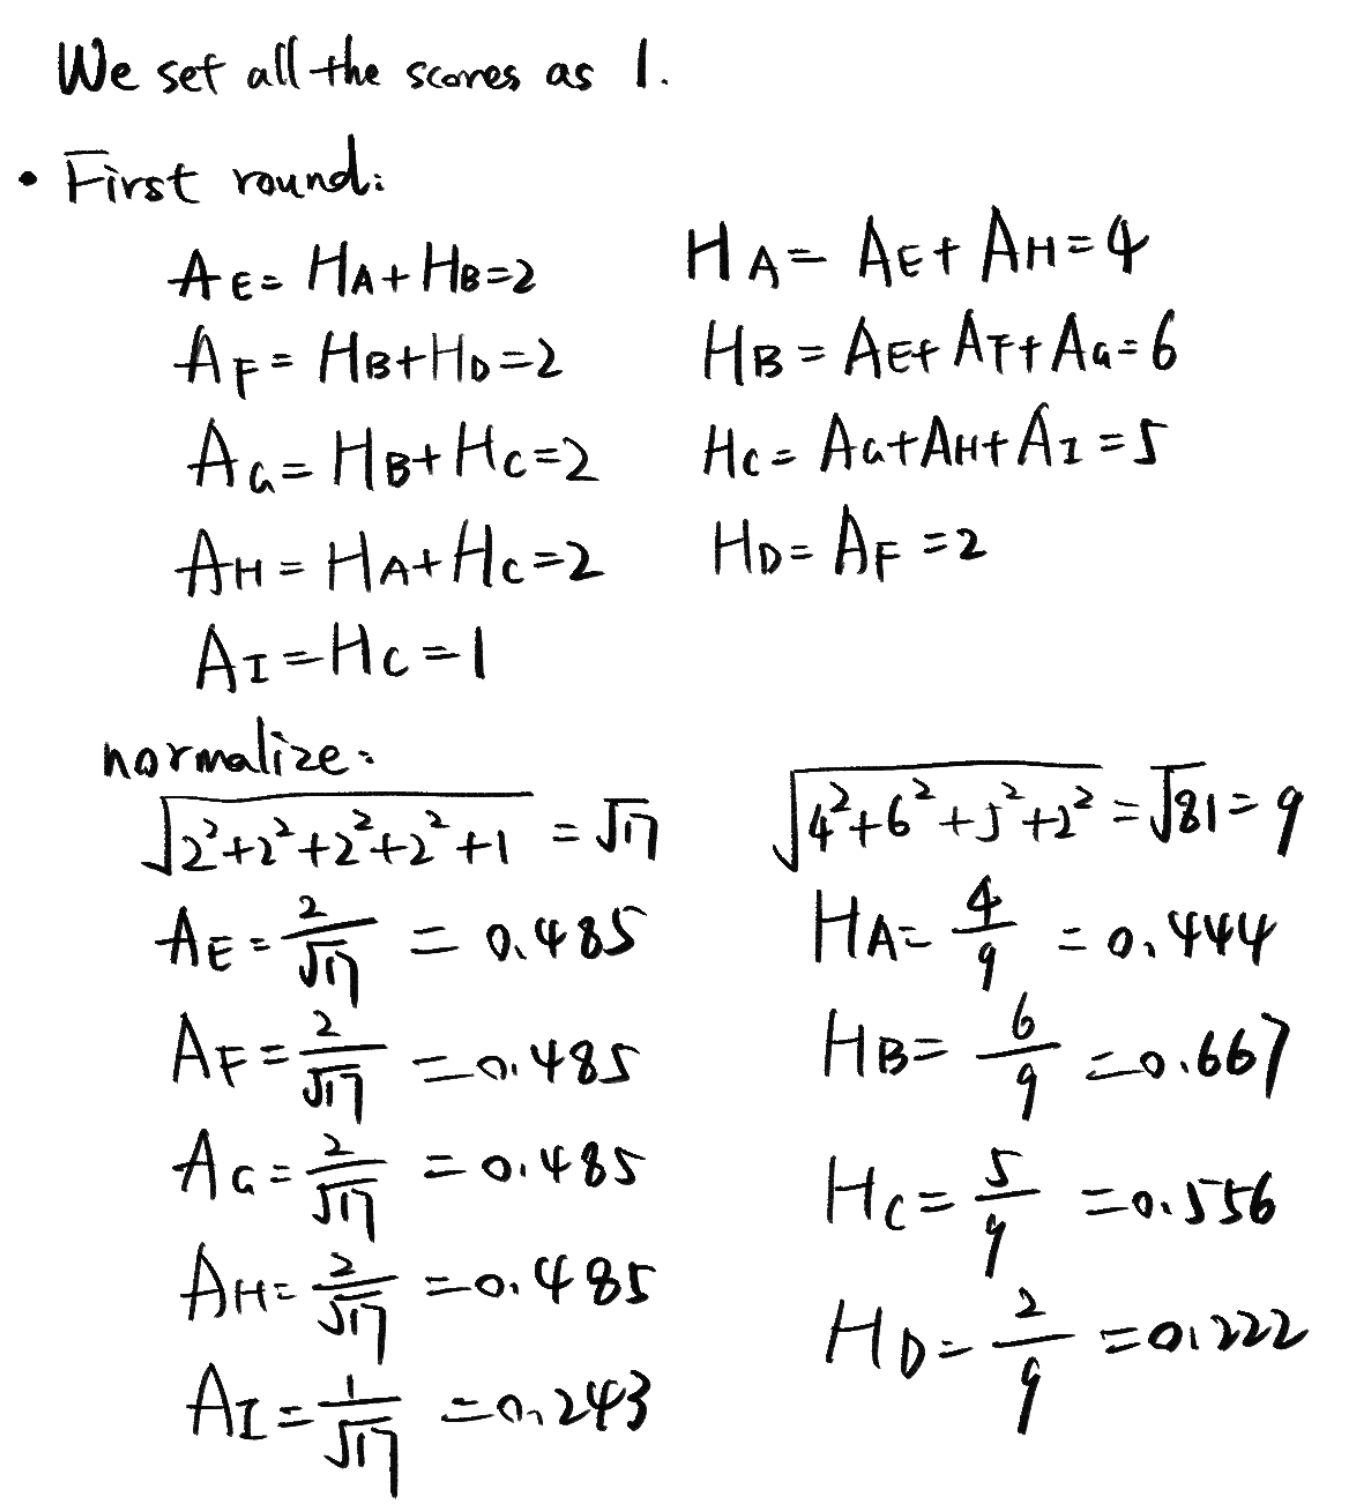 We set all the scores as 1.
• First round:
A_E = H_A + H_B = 2
A_F = H_B + H_D = 2
A_G = H_B + H_C = 2
A_H = H_A + H_C = 2
A_I = H_C = 1
H_A = A_E + A_H = 4
H_B = A_E + A_F + A_G = 6
H_C = A_G + A_H + A_I = 5
H_D = A_F = 2
normalize:
√(2²+2²+2²+2²+1) = √17
A_E = 2/√17 = 0.485
A_F = 2/√17 = 0.485
A_G = 2/√17 = 0.485
A_H = 2/√17 = 0.485
A_I = 1/√17 = 0.243
√(4²+6²+5²+2²) = √81 = 9
H_A = 4/9 = 0.444
H_B = 6/9 = 0.667
H_C = 5/9 = 0.556
H_D = 2/9 = 0.222